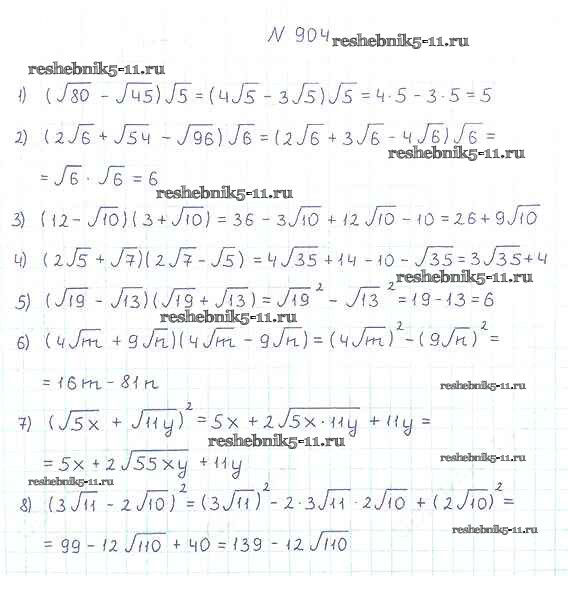 N 904
reshebnik5-11.ru
reshebnik5-11.ru
1) (√80 - √45)√5 = (4√5 - 3√5)√5 = 4·5 - 3·5 = 5
2) (2√6 + √54 - √96)√6 = (2√6 + 3√6 - 4√6)√6 =
reshebnik5-11.ru
= √6 · √6 = 6
reshebnik5-11.ru
3) (12 - √10)(3 + √10) = 36 - 3√10 + 12√10 - 10 = 26 + 9√10
4) (2√5 + √7)(2√7 - √5) = 4√35 + 14 - 10 - √35 = 3√35 + 4
reshebnik5-11.ru
5) (√19 - √13)(√19 + √13) = √19² - √13² = 19 - 13 = 6
reshebnik5-11.ru
6) (4√m + 9√n)(4√m - 9√n) = (4√m)² - (9√n)² =
= 16m - 81n
reshebnik5-11.ru
7) (√5x + √11y)² = 5x + 2√5x·11y + 11y =
reshebnik5-11.ru
= 5x + 2√55xy + 11y
reshebnik5-11.ru
reshebnik5-11.ru
8) (3√11 - 2√10)² = (3√11)² - 2·3√11·2√10 + (2√10)² =
reshebnik5-11.ru
= 99 - 12√110 + 40 = 139 - 12√110